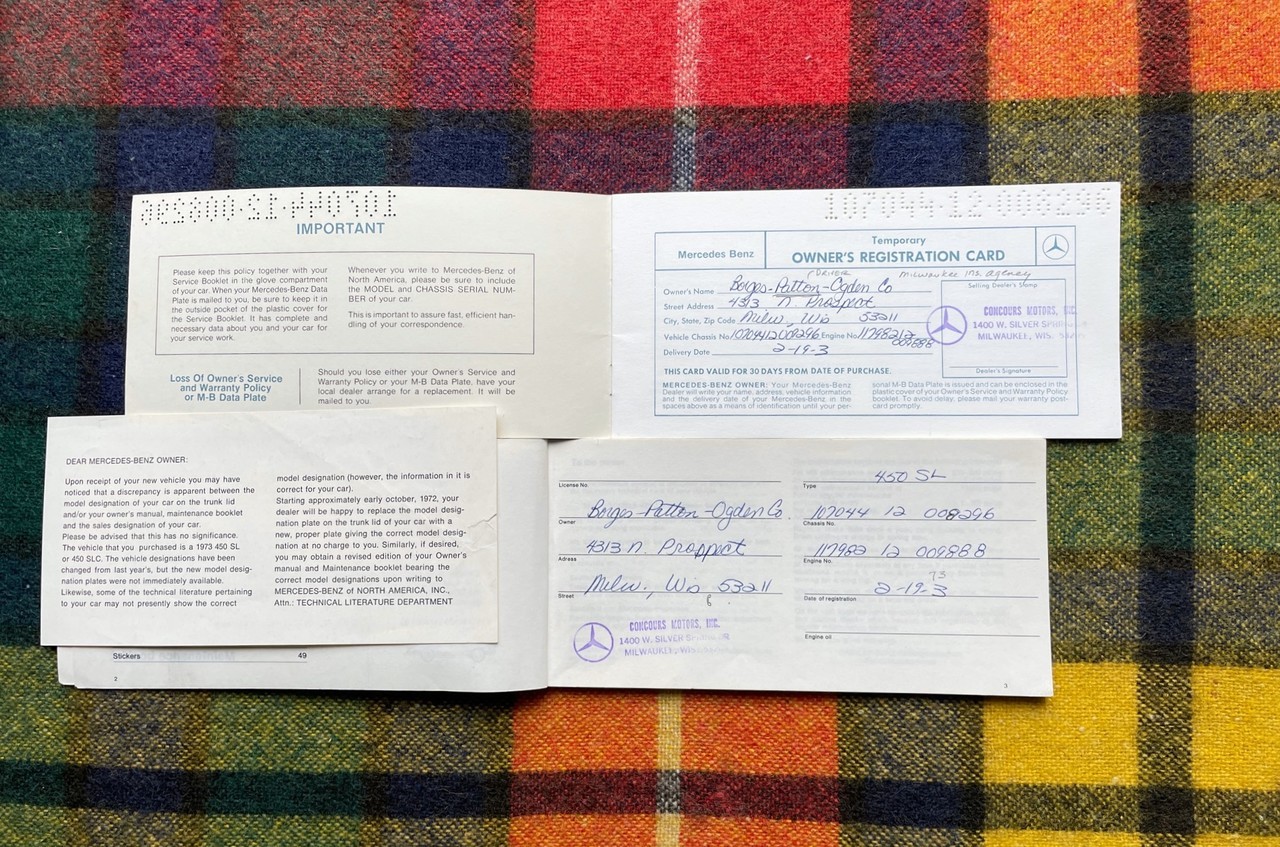 107044-12-008296
IMPORTANT
Please keep this policy together with your
Service Booklet in the glove compartment
of your car. When your Mercedes-Benz Data
Plate is mailed to you, be sure to keep it in
the outside pocket of the plastic cover for
the Service Booklet. It has complete and
necessary data about you and your car for
your service work.
Whenever you write to Mercedes-Benz of
North America, please be sure to include
the MODEL and CHASSIS SERIAL NUM-
BER of your car.
This is important to assure fast, efficient han-
dling of your correspondence.
Loss Of Owner's Service
and Warranty Policy
or M-B Data Plate
Should you lose either your Owner's Service and
Warranty Policy or your M-B Data Plate, have your
local dealer arrange for a replacement. It will be
mailed to you.
107044-12-008296
Mercedes Benz
Temporary
OWNER'S REGISTRATION CARD
Milwaukee Ins. Agency
Owner's Name Borges-Patton-Ogden Co
Street Address 4313 N. Prospect
City, State, Zip Code Milw, Wis 53211
Vehicle Chassis No. 10704412008296 Engine No. 11798212
009888
Delivery Date 2-19-3
Selling Dealer's Stamp
CONCOURS MOTORS, INC.
1400 W. SILVER SPRING
MILWAUKEE, WIS.
Dealer's Signature
THIS CARD VALID FOR 30 DAYS FROM DATE OF PURCHASE.
MERCEDES-BENZ OWNER: Your Mercedes-Benz
Dealer will write your name, address, vehicle information
and the delivery date of your Mercedes-Benz in the
spaces above as a means of identification until your per-
sonal M-B Data Plate is issued and can be enclosed in the
plastic cover of your Owner's Service and Warranty Policy
booklet. To avoid delay, please mail your warranty post-
card promptly.
DEAR MERCEDES-BENZ OWNER:
Upon receipt of your new vehicle you may have
noticed that a discrepancy is apparent between the
model designation of your car on the trunk lid
and/or your owner's manual, maintenance booklet
and the sales designation of your car.
Please be advised that this has no significance.
The vehicle that you purchased is a 1973 450 SL
or 450 SLC. The vehicle designations have been
changed from last year's, but the new model desig-
nation plates were not immediately available.
Likewise, some of the technical literature pertaining
to your car may not presently show the correct
model designation (however, the information in it is
correct for your car).
Starting approximately early october, 1972, your
dealer will be happy to replace the model desig-
nation plate on the trunk lid of your car with a
new, proper plate giving the correct model desig-
nation at no charge to you. Similarly, if desired,
you may obtain a revised edition of your Owner's
manual and Maintenance booklet bearing the
correct model designations upon writing to
MERCEDES-BENZ of NORTH AMERICA, INC.,
Attn.: TECHNICAL LITERATURE DEPARTMENT
Stickers 49
2
License No.
Borges-Patton-Ogden Co.
Owner
4313 N. Prospect
Adress
Milw, Wis 53211
Street
CONCOURS MOTORS, INC.
1400 W. SILVER SPRING DR
MILWAUKEE, WIS.
450 SL
Type
107044 12 008296
Chassis No.
117982 12 009888
Engine No.
73
2-19-3
Date of registration
Engine oil
3